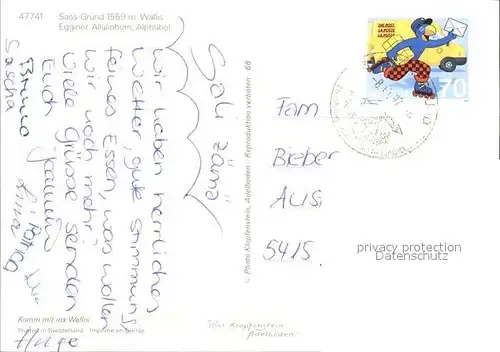 47741 Saas-Grund 1559 m Wallis
Egginer, Allalinhorn, Alphubel
Sali zämä
Wir haben herrliches
Wetter, gute Stimmung,
feines Essen, was wollen
wir noch mehr.
Viele Grüsse senden
Euch
Bruno
Sascha
Komm mit ins Wallis
Printed in Switzerland - Imprimé en Suisse
© Photo Klopfenstein, Adelboden Reproduktion verboten 68
Photo Klopfenstein
Adelboden
70
Fam
Bieber
5415
privacy protection
Datenschutz